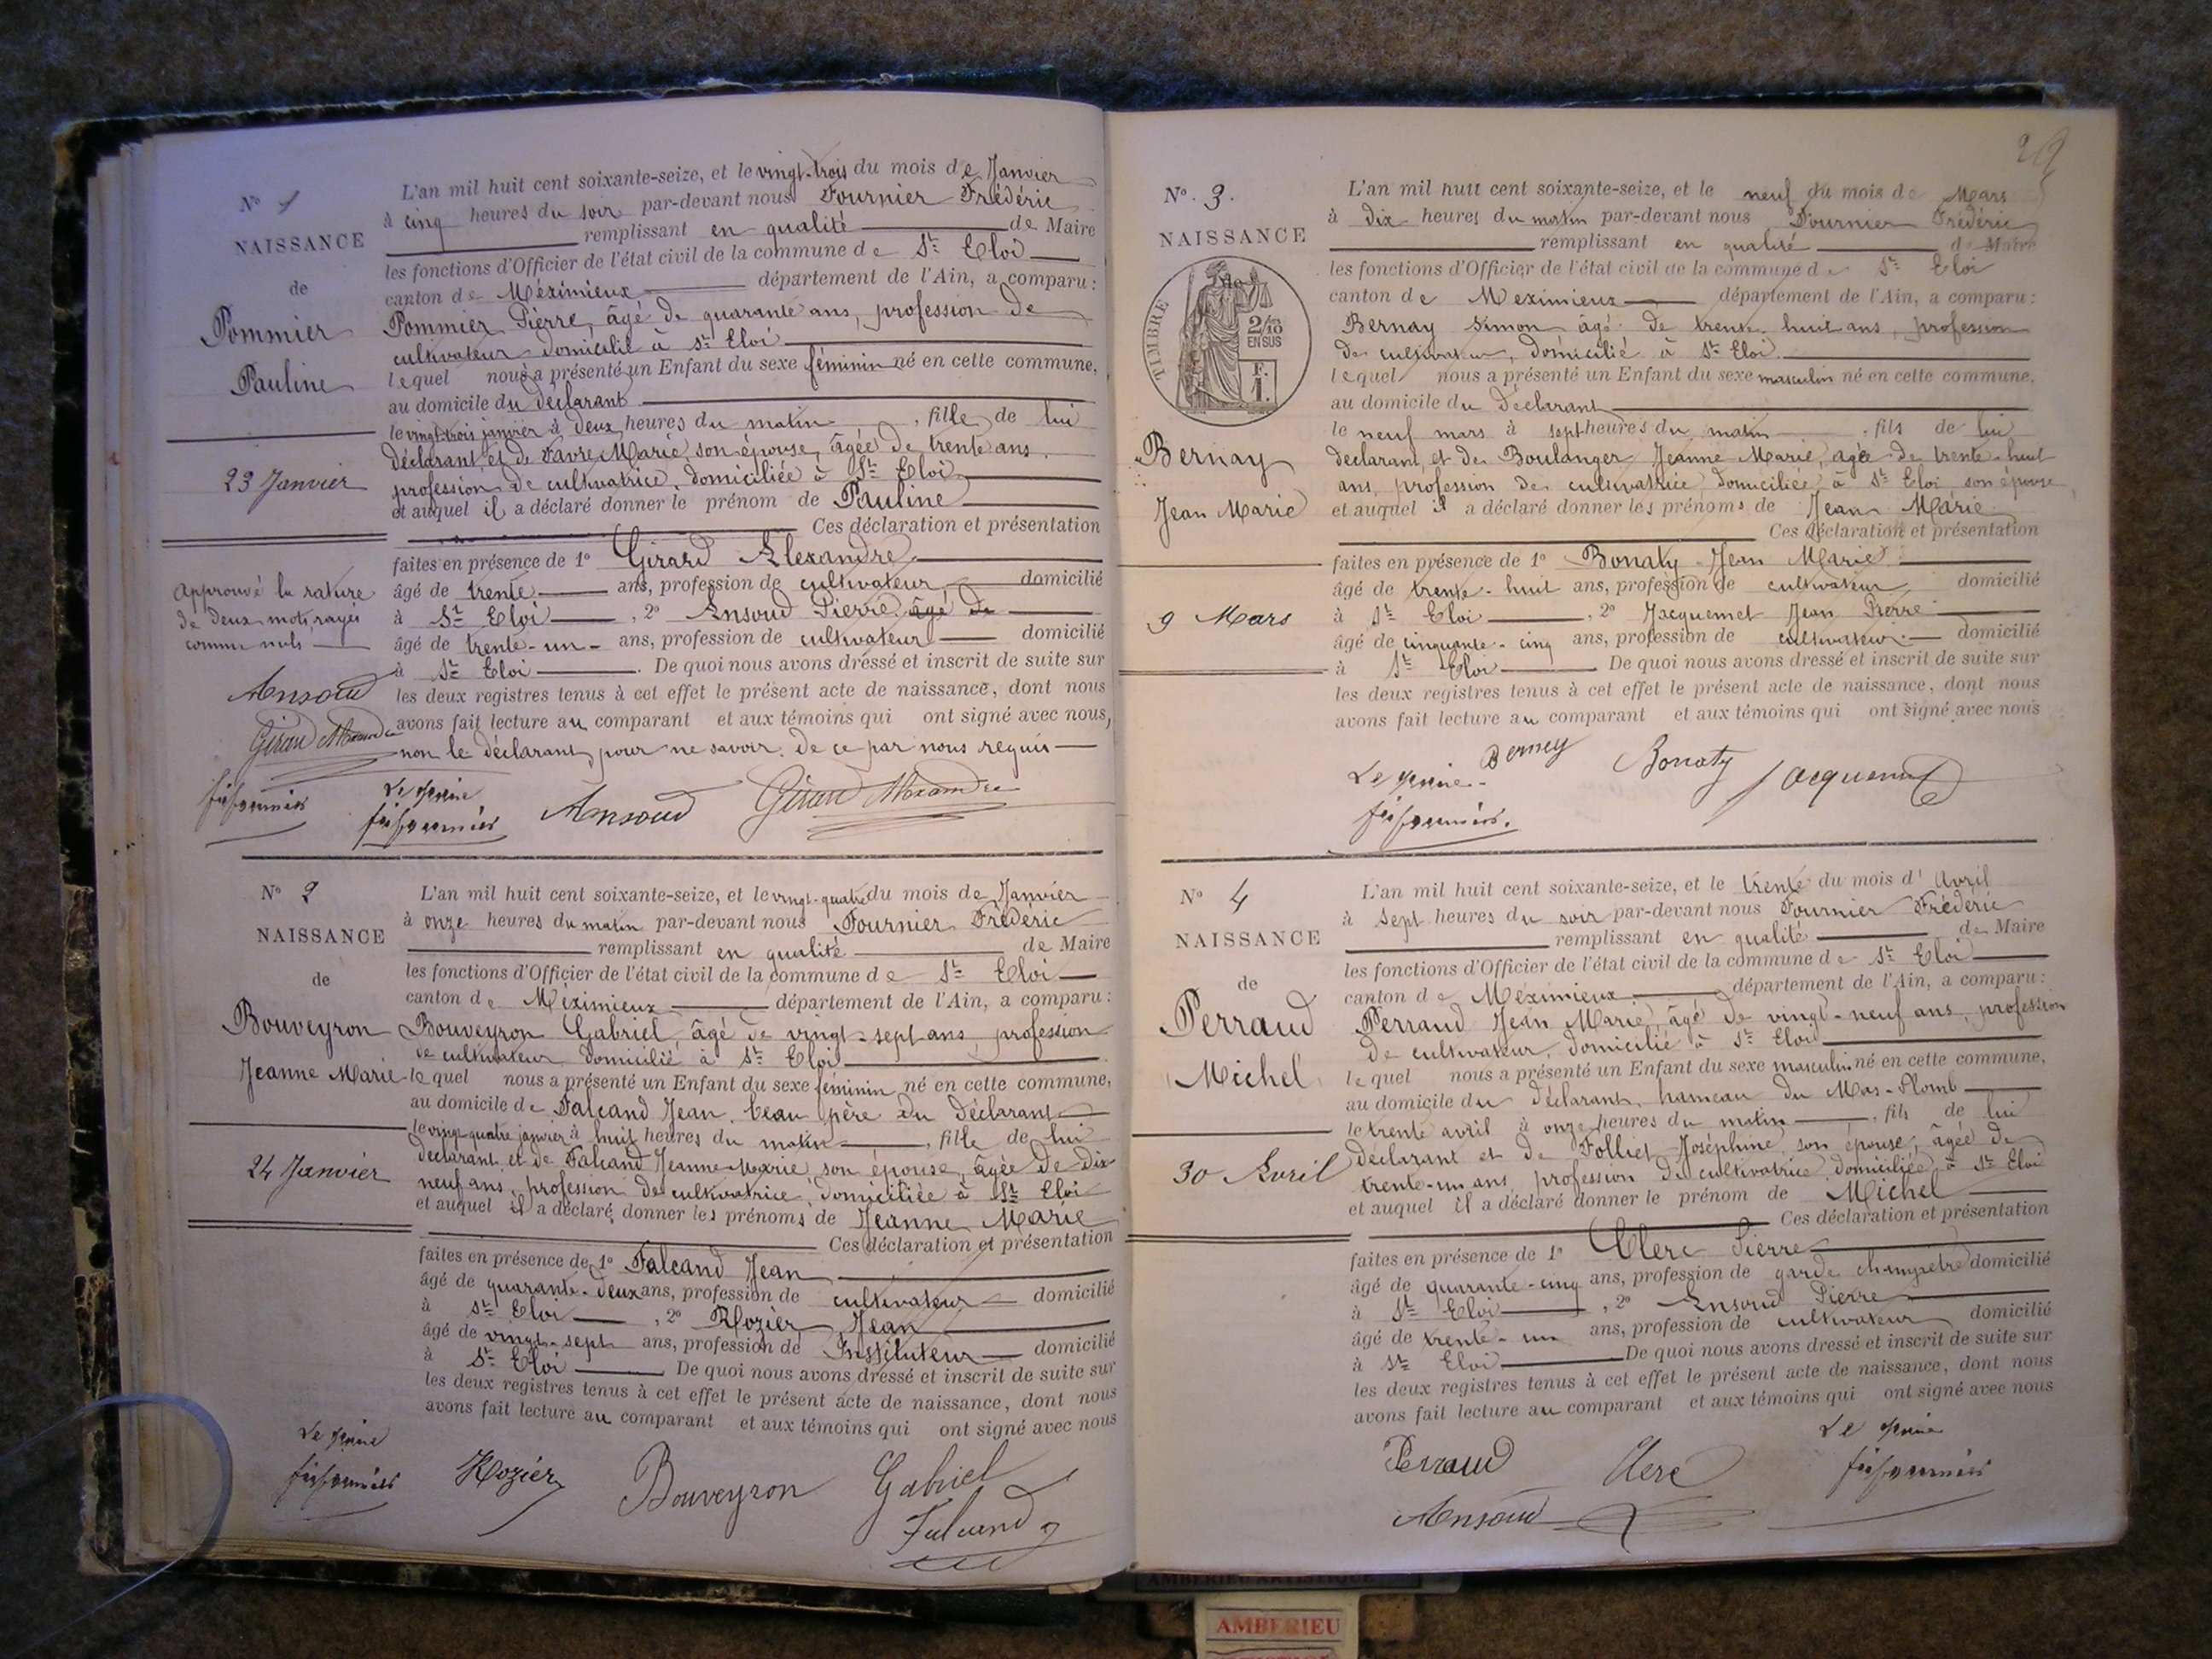 N° 1
NAISSANCE
de
Pommier
Pauline
23 Janvier
Approuvé la rature
de deux mots rayés
comme nuls
Ansoud
Girard Alexandre
L'an mil huit cent soixante-seize, et le vingt-trois du mois de Janvier
à cinq heures du soir par-devant nous Fournier Frédéric
remplissant en qualité de Maire
les fonctions d'Officier de l'état civil de la commune de St Eloi
canton de Méximieux département de l'Ain, a comparu:
Pommier Pierre, âgé de quarante ans, profession de
cultivateur domicilié à St Eloi
lequel nous a présenté un Enfant du sexe féminin né en cette commune,
au domicile du déclarant
le vingt-trois janvier à deux heures du matin, fille de lui
déclarant, et de Favre Marie, son épouse, âgée de trente ans,
profession de cultivatrice, domiciliée à St Eloi
et auquel il a déclaré donner le prénom de Pauline
Ces déclaration et présentation
faites en présence de 1° Girard Alexandre
âgé de trente ans, profession de cultivateur domicilié
à St Eloi, 2° Ansoud Pierre âgé de
âgé de trente-un ans, profession de cultivateur domicilié
à St Eloi. De quoi nous avons dressé et inscrit de suite sur
les deux registres tenus à cet effet le présent acte de naissance, dont nous
avons fait lecture au comparant et aux témoins qui ont signé avec nous,
non le déclarant, pour ne savoir, de ce par nous requis
Le Maire
Ansoud Girard Alexandre
N° 2
NAISSANCE
de
Bouveyron
Jeanne Marie
24 Janvier
L'an mil huit cent soixante-seize, et le vingt-quatre du mois de Janvier
à onze heures du matin par-devant nous Fournier Frédéric
remplissant en qualité de Maire
les fonctions d'Officier de l'état civil de la commune de St Eloi
canton de Méximieux département de l'Ain, a comparu:
Bouveyron Gabriel, âgé de vingt-sept ans, profession
de cultivateur domicilié à St Eloi
lequel nous a présenté un Enfant du sexe féminin né en cette commune,
au domicile de Falcand Jean, beau père du déclarant
le vingt quatre janvier à huit heures du matin, fille de lui
déclarant, et de Falcand Jeanne Marie, son épouse, âgée de dix
neuf ans, profession de cultivatrice, domiciliée à St Eloi
et auquel il a déclaré donner les prénoms de Jeanne Marie
Ces déclaration et présentation
faites en présence de 1° Falcand Jean
âgé de quarante-deux ans, profession de cultivateur domicilié
à St Eloi, 2° Rozier Jean
âgé de vingt-sept ans, profession de Instituteur domicilié
à St Eloi De quoi nous avons dressé et inscrit de suite sur
les deux registres tenus à cet effet le présent acte de naissance, dont nous
avons fait lecture au comparant et aux témoins qui ont signé avec nous
Le Maire
Rozier Bouveyron Gabriel
Falcand
N° 3.
NAISSANCE
de
TIMBRE
2/10
EN SUS
F.
1.
Bernay
Jean Marie
9 Mars
L'an mil huit cent soixante-seize, et le neuf du mois de Mars
à dix heures du matin par-devant nous Fournier Frédéric
remplissant en qualité de Maire
les fonctions d'Officier de l'état civil de la commune de St Eloi
canton de Meximieux département de l'Ain, a comparu:
Bernay Simon âgé de trente-huit ans, profession
de cultivateur, domicilié à St Eloi
lequel nous a présenté un Enfant du sexe masculin né en cette commune,
au domicile du déclarant
le neuf mars à sept heures du matin, fils de lui
déclarant, et de Boulanger Jeanne Marie, âgée de trente-huit
ans, profession de cultivatrice, domiciliée à St Eloi son épouse
et auquel il a déclaré donner les prénoms de Jean Marie
Ces déclaration et présentation
faites en présence de 1° Bonaty Jean Marie
âgé de trente-huit ans, profession de cultivateur domicilié
à St Eloi, 2° Jacquemet Jean Pierre
âgé de cinquante-cinq ans, profession de cultivateur domicilié
à St Eloi De quoi nous avons dressé et inscrit de suite sur
les deux registres tenus à cet effet le présent acte de naissance, dont nous
avons fait lecture au comparant et aux témoins qui ont signé avec nous
Le Maire Bonaty Jacquemet
N° 4
NAISSANCE
de
Perraud
Michel
30 Avril
L'an mil huit cent soixante-seize, et le trente du mois d'Avril
à sept heures du soir par-devant nous Fournier Frédéric
remplissant en qualité de Maire
les fonctions d'Officier de l'état civil de la commune de St Eloi
canton de Méximieux département de l'Ain, a comparu:
Perraud Jean Marie, âgé de vingt-neuf ans, profession
de cultivateur, domicilié à St Eloi
lequel nous a présenté un Enfant du sexe masculin né en cette commune,
au domicile du déclarant, hameau du Mas-Plomb
le trente avril à onze heures du matin, fils de lui
déclarant et de Folliet Joséphine, son épouse, âgée de
trente-un ans, profession de cultivatrice, domiciliée à St Eloi
et auquel il a déclaré donner le prénom de Michel
Ces déclaration et présentation
faites en présence de 1° Clerc Pierre
âgé de quarante-cinq ans, profession de garde champêtre domicilié
à St Eloi, 2° Ansoud Pierre
âgé de trente-un ans, profession de cultivateur domicilié
à St Eloi De quoi nous avons dressé et inscrit de suite sur
les deux registres tenus à cet effet le présent acte de naissance, dont nous
avons fait lecture au comparant et aux témoins qui ont signé avec nous
Le Maire
Perraud Clerc
Ansoud
AMBERIEU ARTISTIQUE
AMBERIEU